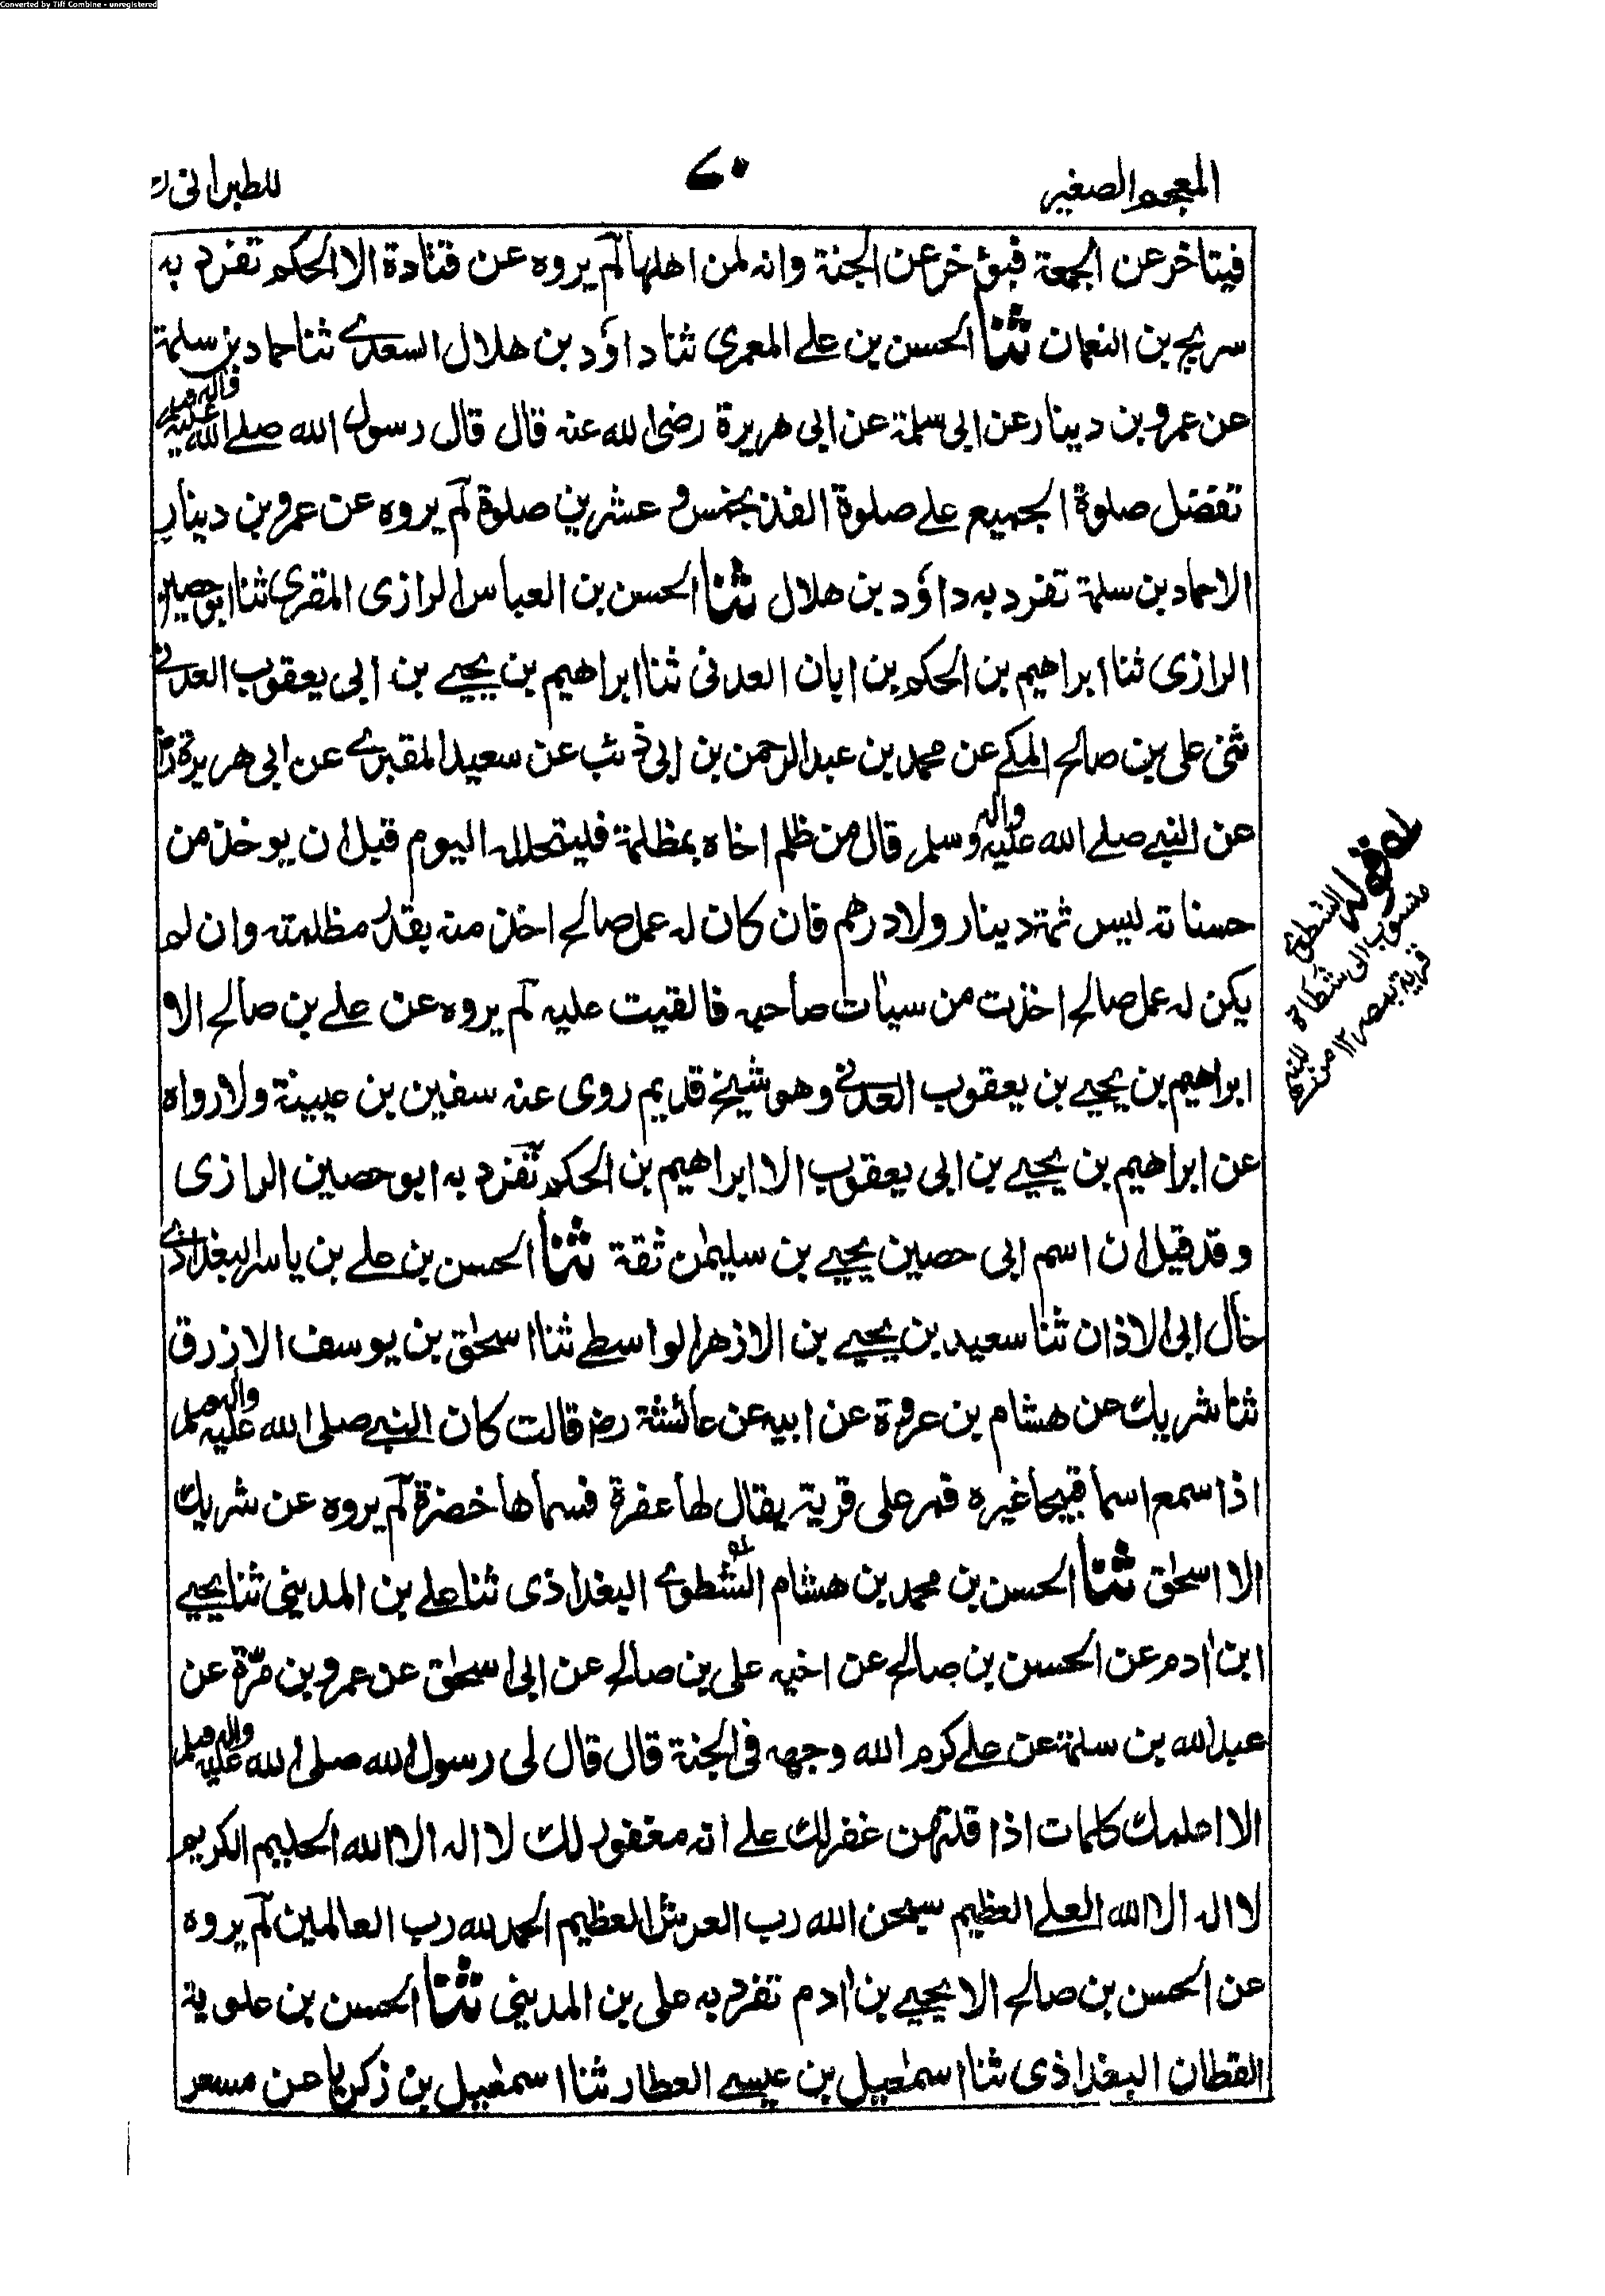 Converted by Tiff Combine - unregistered
المعجم الصغير
٧٠
للطبرانی
فيتاخر عن الجمعة فيؤخر عن الجنة وانه لمن اهلها لم يروه عن قتادة الا الحكم تفرد به
سريج بن النعمان ثنا الحسن بن علي المعمری ثنا داؤد بن هلال السعدے ثنا حماد بن سلمة
عن عمرو بن دينار عن ابی سلمة عن ابی هريرة رضی الله عنه قال قال رسول الله صلے الله عليه وآله وسلم
تفضل صلوة الجميع علے صلوة الفذ بخمس و عشرين صلوة لم يروه عن عمرو بن دينار
الا حماد بن سلمة تفرد به داؤد بن هلال ثنا الحسن بن العباس الرازی المقری ثنا ابو حصين
الرازی ثنا ابراهيم بن الحكم بن ابان العدنی ثنا ابراهيم بن يحيے بن ابی يعقوب العدنے
ثنی علی بن صالح المكے عن محمد بن عبد الرحمن بن ابی ذئب عن سعيد المقبرے عن ابی هريرة رض
عن النبے صلے الله عليه وآله وسلم قال من ظلم اخاه بمظلمة فليتحلله اليوم قبل ان يوخذ من
حسناته ليس ثمة دينار ولا درهم فان كان له عمل صالح اخذ منه بقدر مظلمته وان لم
يكن له عمل صالح اخذت من سيأت صاحبه فالقيت عليه لم يروه عن علے بن صالح الا
ابراهيم بن يحيے بن يعقوب العدنے وهو شيخ قديم روی عنه سفين بن عيينة ولا رواه
عن ابراهيم بن يحيے بن ابی يعقوب الا ابراهيم بن الحكم تفرد به ابو حصين الرازی
وقد قيل ان اسم ابی حصين يحيے بن سليمٰن ثقة ثنا الحسن بن علے بن ياسر البغدادے
خال ابی الاذان ثنا سعيد بن يحيے بن الازهر الواسطے ثنا اسحٰق بن يوسف الازرق
ثنا شريك عن هشام بن عروة عن ابيه عن عائشة رض قالت كان النبے صلی الله عليه وآله وسلم
اذا سمع اسما قبيحا غيره فمر علی قرية يقال لها عفرة فسماها خضرة لم يروه عن شريك
الا اسحٰق ثنا الحسن بن محمد بن هشام الشطوے البغداذی ثنا علے بن المدينی ثنا يحيے
ابن اٰدم عن الحسن بن صالح عن اخيه علی بن صالح عن ابی اسحٰق عن عمرو بن مرّة عن
عبد الله بن سلمة عن علے كرم الله وجهه فی الجنة قال قال لی رسول الله صلی الله عليه وآله وسلم
الا اعلمك كلمات اذا قلتهن غفر لك علے انه مغفور لك لا اله الا الله الحليم الكريم
لا اله الا الله العلے العظيم سبحن الله رب العرش العظيم الحمد لله رب العالمين لم يروه
عن الحسن بن صالح الا يحيے بن اٰدم تفرد به علی بن المدينی ثنا الحسن بن علوية
القطان البغداذی ثنا اسمٰعيل بن عيسے العطار ثنا اسمٰعيل بن زكريا عن مسعر
له قوله الشطوی
منسوب الی شطاة
قرية بمصر ١٢